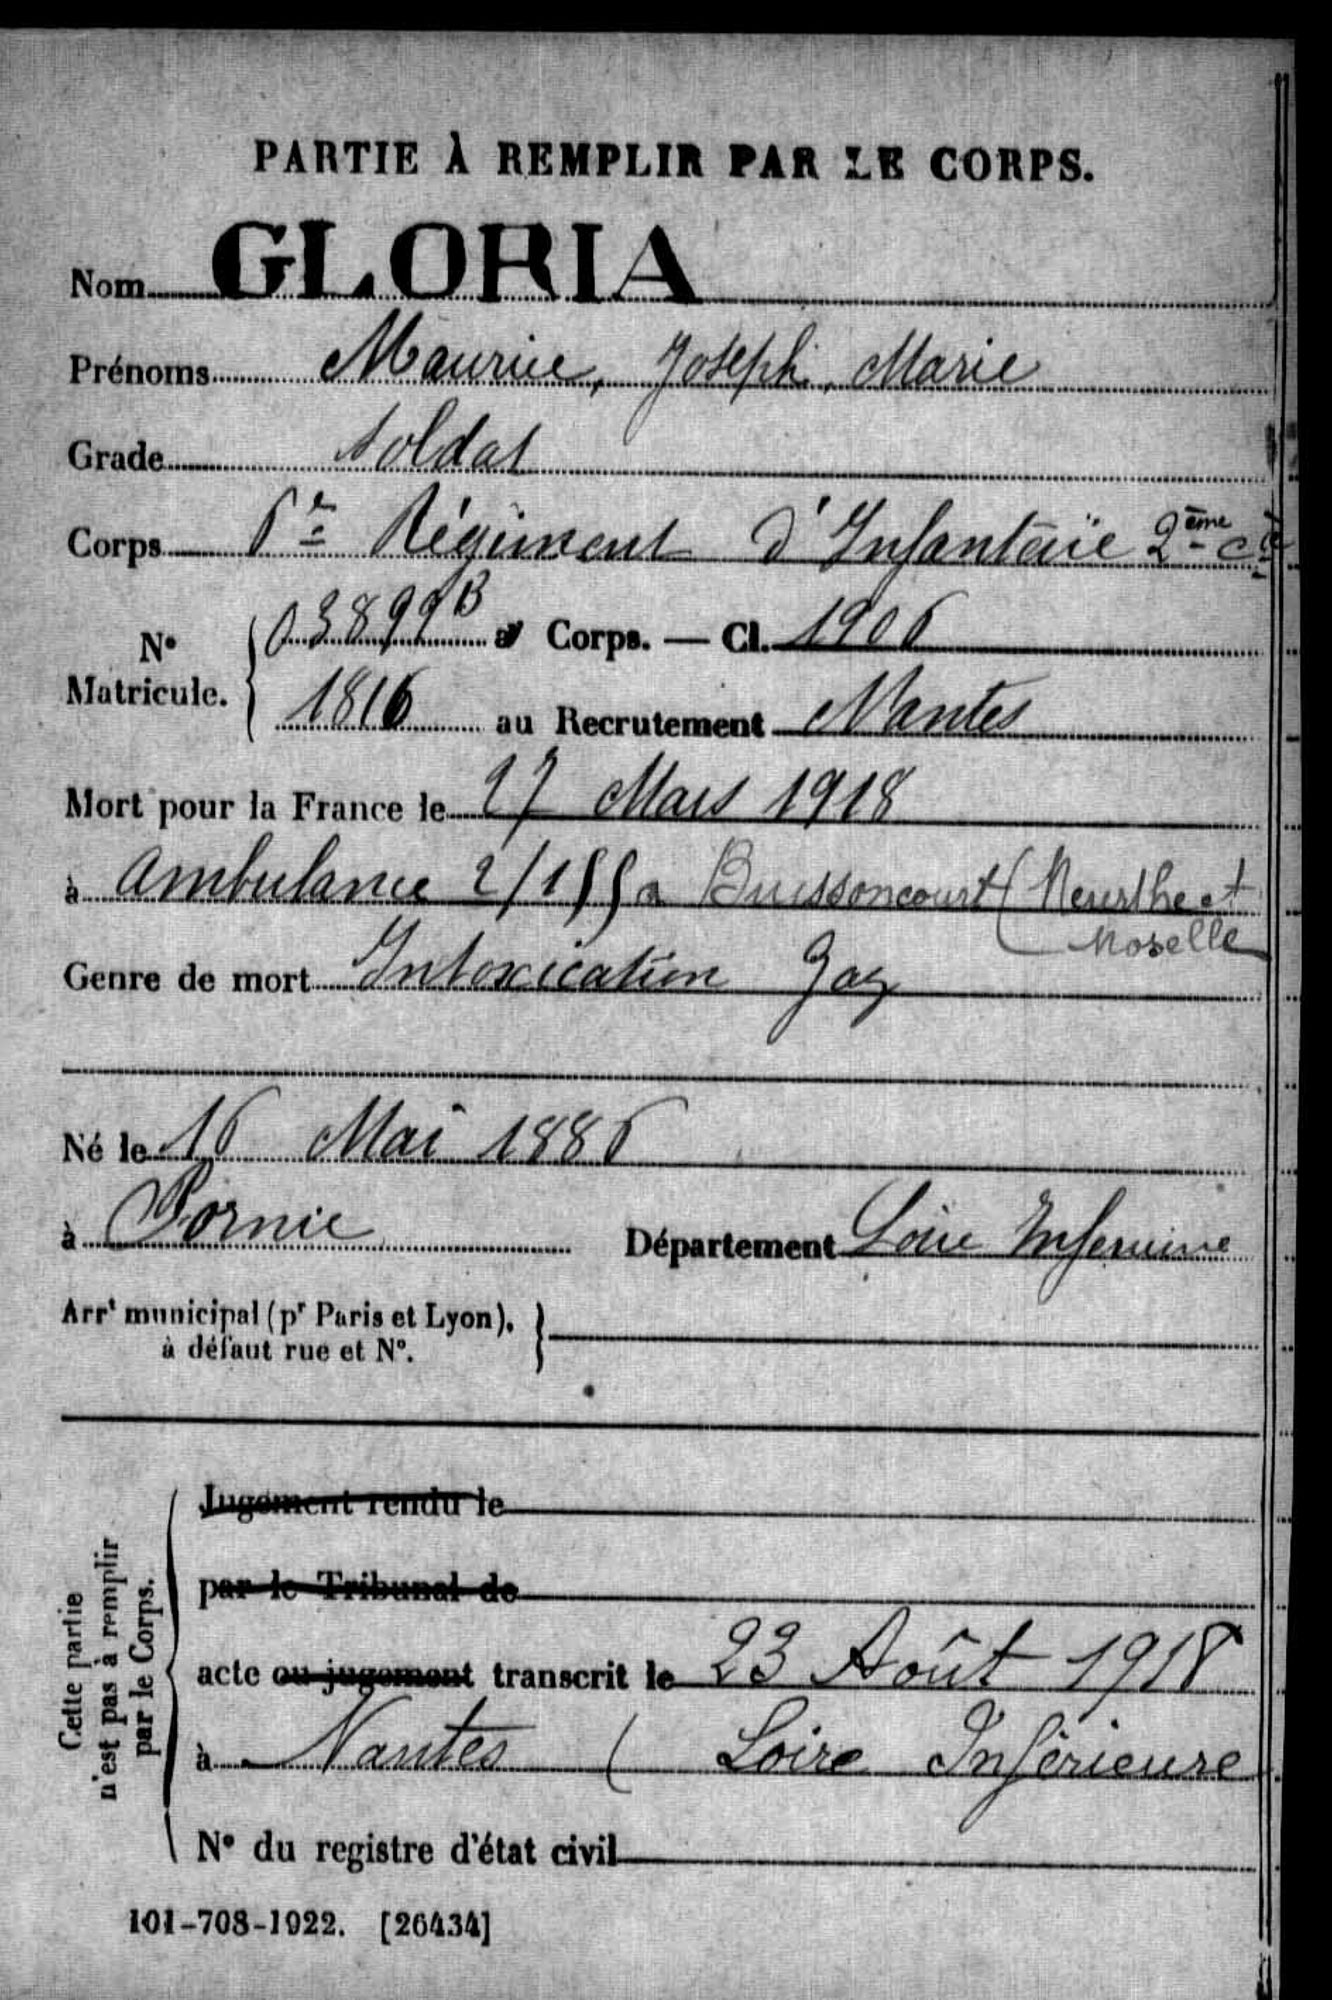 PARTIE À REMPLIR PAR LE CORPS.
Nom GLORIA
Prénoms Maurice, Joseph, Marie
Grade Soldat
Corps 6e Régiment d'Infanterie 2ème Cie
N° Matricule. 03899B au Corps. — Cl. 1906
1816 au Recrutement Nantes
Mort pour la France le 27 Mars 1918
à Ambulance 2/155 a Buissoncourt (Meurthe et
Moselle
Genre de mort Intoxication Gaz
Né le 16 Mai 1886
à Pornic Département Loire Inférieure
Arrt municipal (pr Paris et Lyon),
à défaut rue et N°.
Cette partie
n'est pas à remplir
par le Corps.
Jugement rendu le
par le Tribunal de
acte ou jugement transcrit le 23 Août 1918
à Nantes ( Loire Inférieure
N° du registre d'état civil
101-708-1922. [26434]